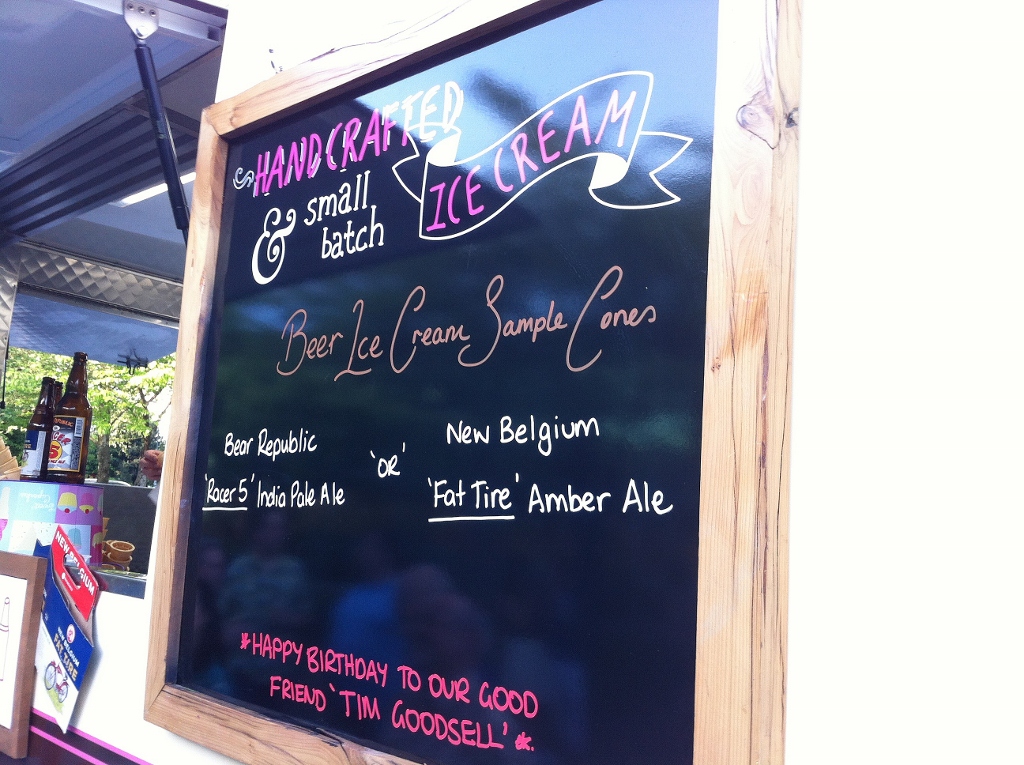 HANDCRAFTED
& small
batch
ICE CREAM
Beer Ice Cream Sample Cones
Bear Republic
'Racer 5' India Pale Ale
'OR'
New Belgium
'Fat Tire' Amber Ale
*HAPPY BIRTHDAY TO OUR GOOD
FRIEND 'TIM GOODSELL' *.
NEW BELGIUM
NEW BELGIUM
FAT TIRE
5